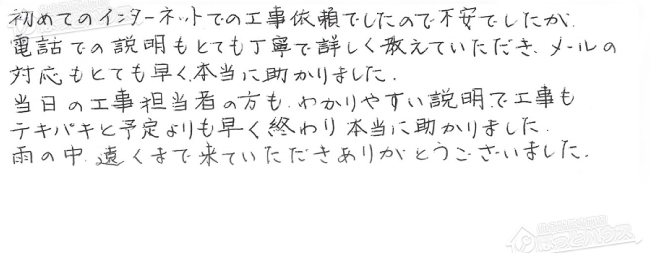 初めてのインターネットでの工事依頼でしたので不安でしたが、
電話での説明もとても丁寧で詳しく教えていただき、メールの
対応もとても早く、本当に助かりました.
当日の工事担当者の方も、わかりやすい説明で工事も
テキパキと予定よりも早く終わり本当に助かりました.
雨の中、遠くまで来ていただきありがとうございました.